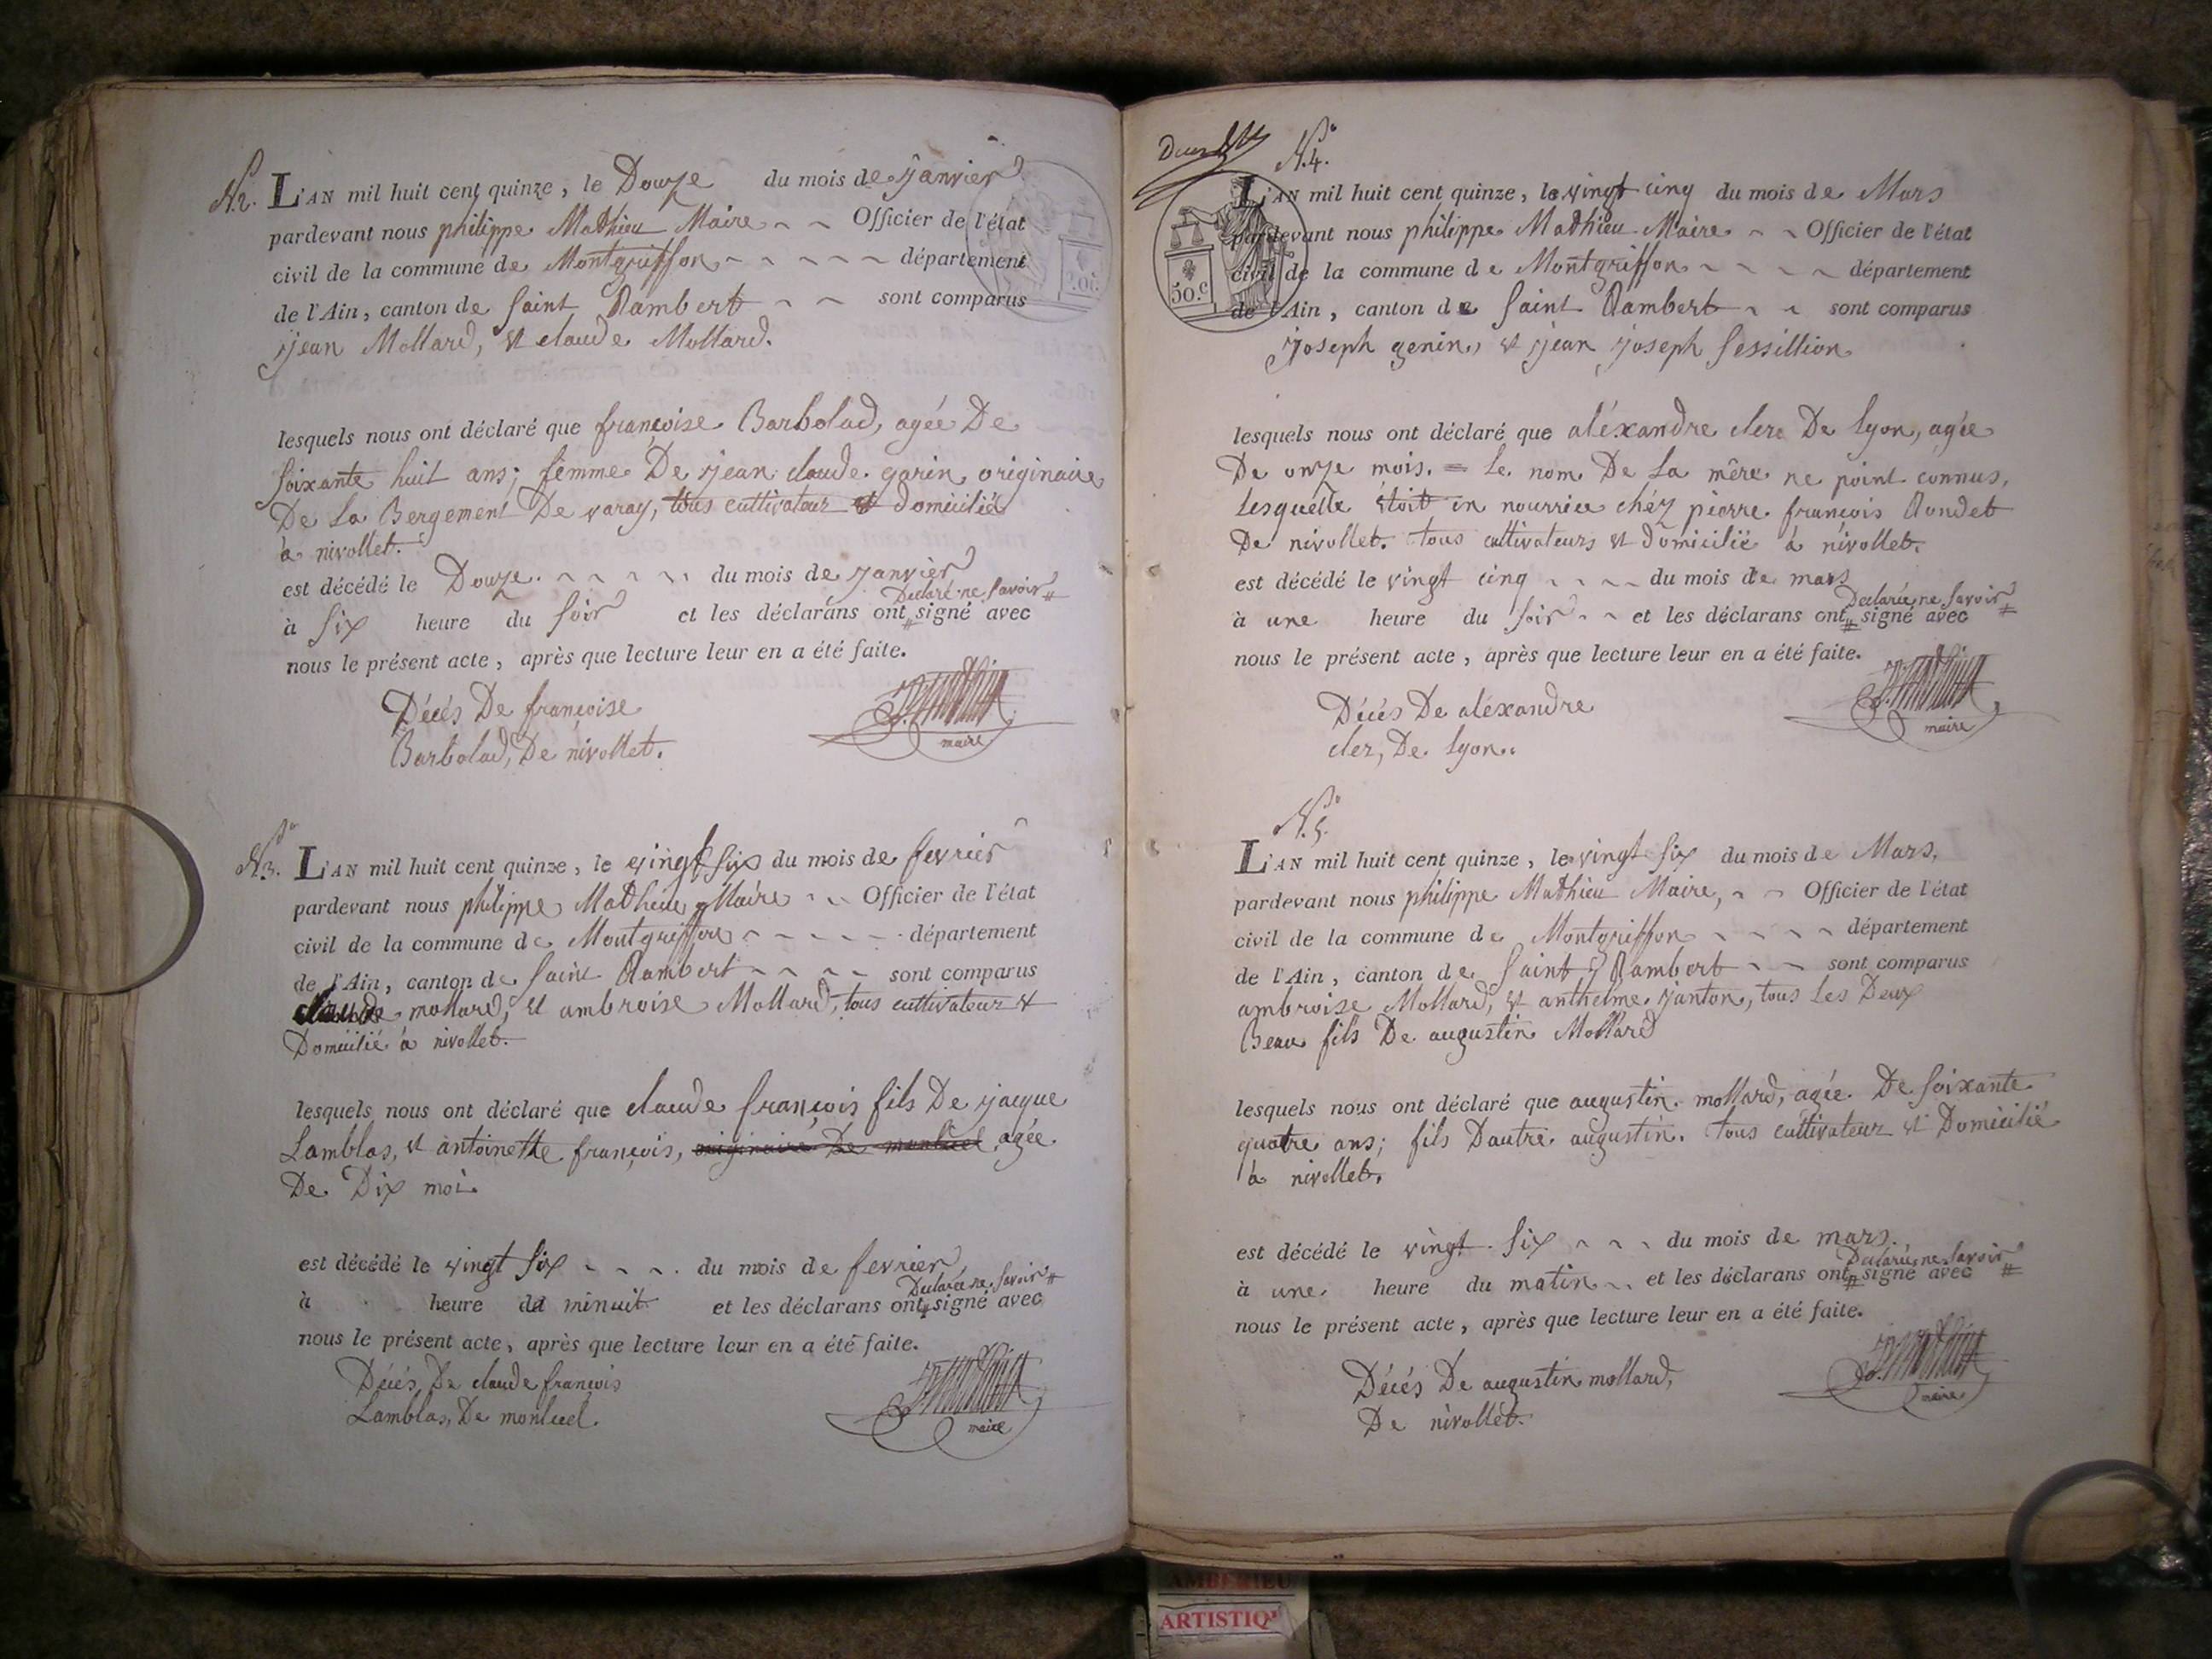 N.2. L'AN mil huit cent quinze, le Douze du mois de janvier
pardevant nous philippe Mathieu Maire Officier de l'état
civil de la commune de Montgriffon département
de l'Ain, canton de Saint Rambert sont comparus
jean Mollard, et claude Mollard.
lesquels nous ont déclaré que françoise Barbolad, agée De
Soixante huit ans; femme De jean claude garin originaire
De La Bergement De varay, tous cultivateur et Domicilié
à nivollet.
est décédé le Douze du mois de janvier
Declaré ne Savoir #
à Six heure du Soir et les déclarans ont # signé avec
nous le présent acte, après que lecture leur en a été faite.
Décés De françoise
Barbolad, De nivollet.
maire
N.3. L'AN mil huit cent quinze, le vingt Six du mois de fevrier
pardevant nous philippe Mathieu Maire Officier de l'état
civil de la commune de Montgriffon département
de l'Ain, canton de Saint Rambert sont comparus
claude mollard, et ambroise Mollard, tous cultivateur et
Domicilié à nivollet.
lesquels nous ont déclaré que claude françois fils De jacque
Lamblas, et antoinette françois, originaire De monluel agée
De Dix moi
est décédé le vingt Six du mois de fevrier
Declarée ne Savoir #
à heure de minuit et les déclarans ont # signé avec
nous le présent acte, après que lecture leur en a été faite.
Décés De claude françois
Lamblas, De monluel.
maire
N.4.
50.c
L'AN mil huit cent quinze, le vingt cinq du mois de Mars
pardevant nous philippe Mathieu Maire Officier de l'état
civil de la commune de Montgriffon département
de l'Ain, canton de Saint Rambert sont comparus
joseph genin, et jean joseph Sessillion
lesquels nous ont déclaré que aléxandre clerc De Lyon, agée
De onze mois. = Le nom De La mêre ne point connus,
Lesquelle étoit en nourrice chéz pierre françois Rondet
De nivollet. tous cultivateurs et Domicilié à nivollet.
est décédé le vingt cinq du mois de mars
Declarée ne Savoir #
à une heure du Soir et les déclarans ont # signé avec
nous le présent acte, après que lecture leur en a été faite.
Décés De aléxandre
cler, De Lyon.
maire
N.5.
L'AN mil huit cent quinze, le vingt Six du mois de Mars,
pardevant nous philippe Mathieu Maire, Officier de l'état
civil de la commune de Montgriffon département
de l'Ain, canton de Saint Rambert sont comparus
ambroise Mollard, et anthelme janton, tous Les Deux
Beau fils De augustin Mollard
lesquels nous ont déclaré que augustin mollard, agée De Soixante
quatre ans; fils Dautre augustin. tous cultivateur et Domicilié
à nivollet.
est décédé le vingt Six du mois de mars.
Declarée ne Savoir #
à une heure du matin et les déclarans ont # signé avec
nous le présent acte, après que lecture leur en a été faite.
Décés De augustin mollard,
De nivollet.
maire
AMBERIEU
ARTISTIQU